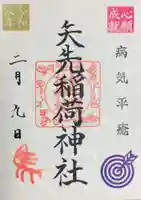 心願成就
病気平癒
矢先稲荷神社
二月九日